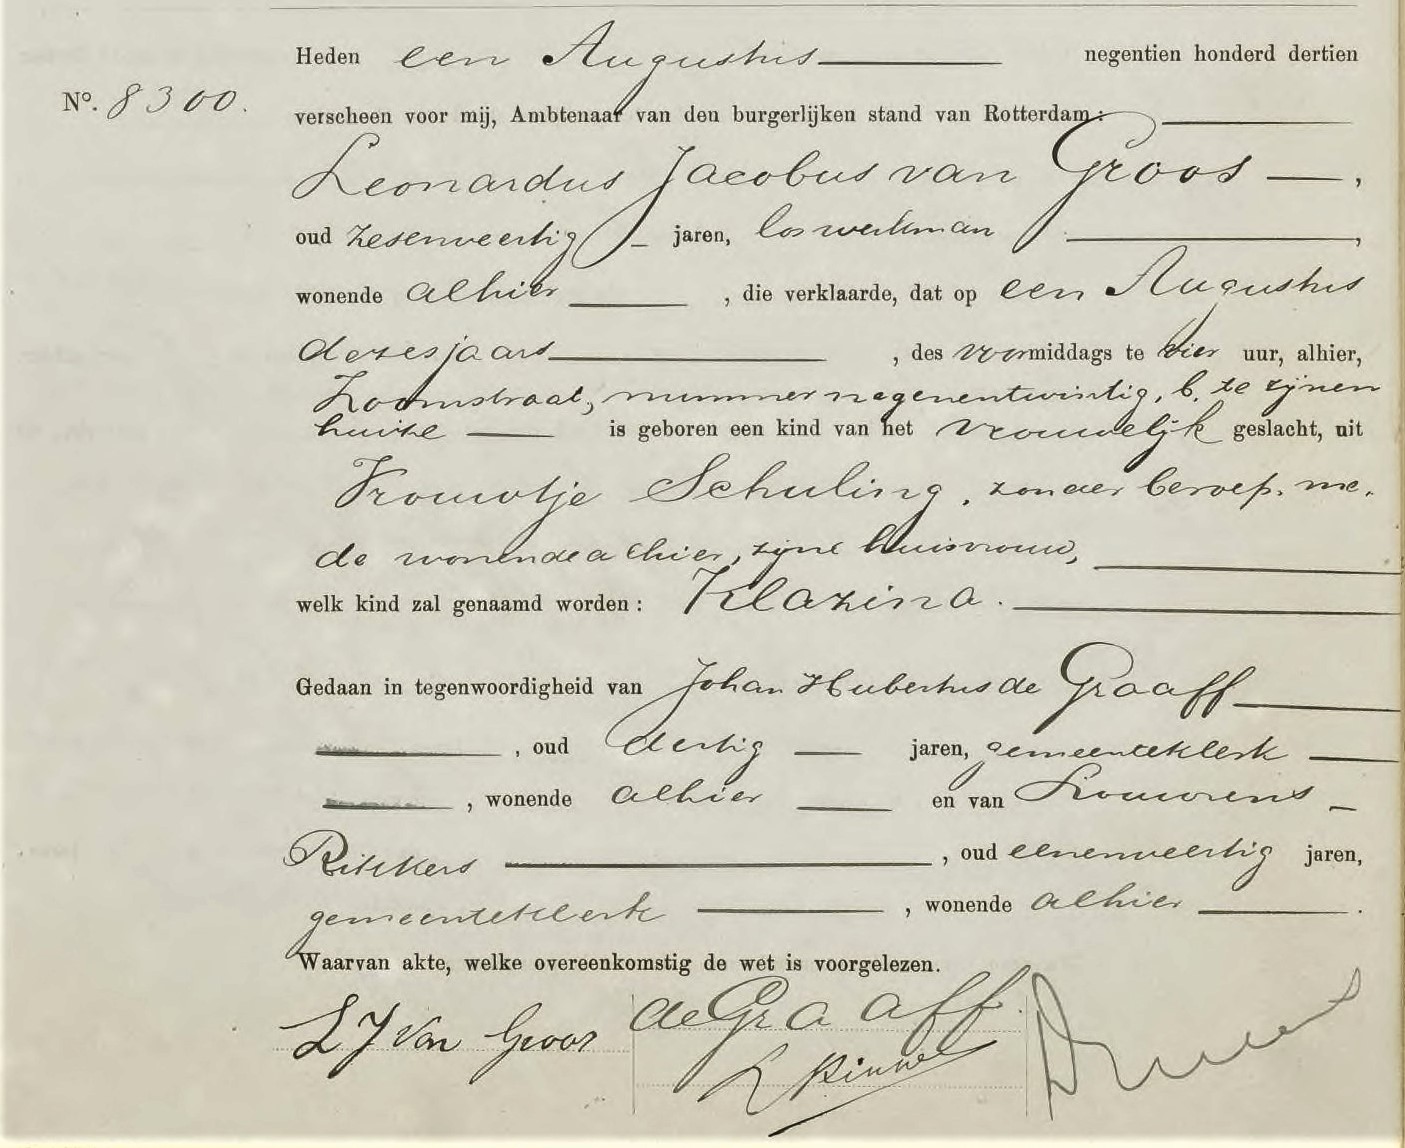 Heden een Augustus negentien honderd dertien
No. 8300.
verscheen voor mij, Ambtenaar van den burgerlijken stand van Rotterdam:
Leonardus Jacobus van Groos,
oud zesenveertig jaren, los werkman,
wonende alhier, die verklaarde, dat op een Augustus
dezes jaars, des voormiddags te vier uur, alhier,
Zoomstraat, nummer negenentwintig, b, te zijnen
huize is geboren een kind van het vrouwelijk geslacht, uit
Vrouwtje Schuling, zonder beroep, me-
de wonende alhier, zijne huisvrouw,
welk kind zal genaamd worden: Klazina.
Gedaan in tegenwoordigheid van Johan Hubertus de Graaff
, oud dertig jaren, gemeenteklerk
, wonende alhier en van Louwrens
Rikkers, oud eenenveertig jaren,
gemeenteklerk, wonende alhier.
Waarvan akte, welke overeenkomstig de wet is voorgelezen.
L J van Groos de Graaff
L